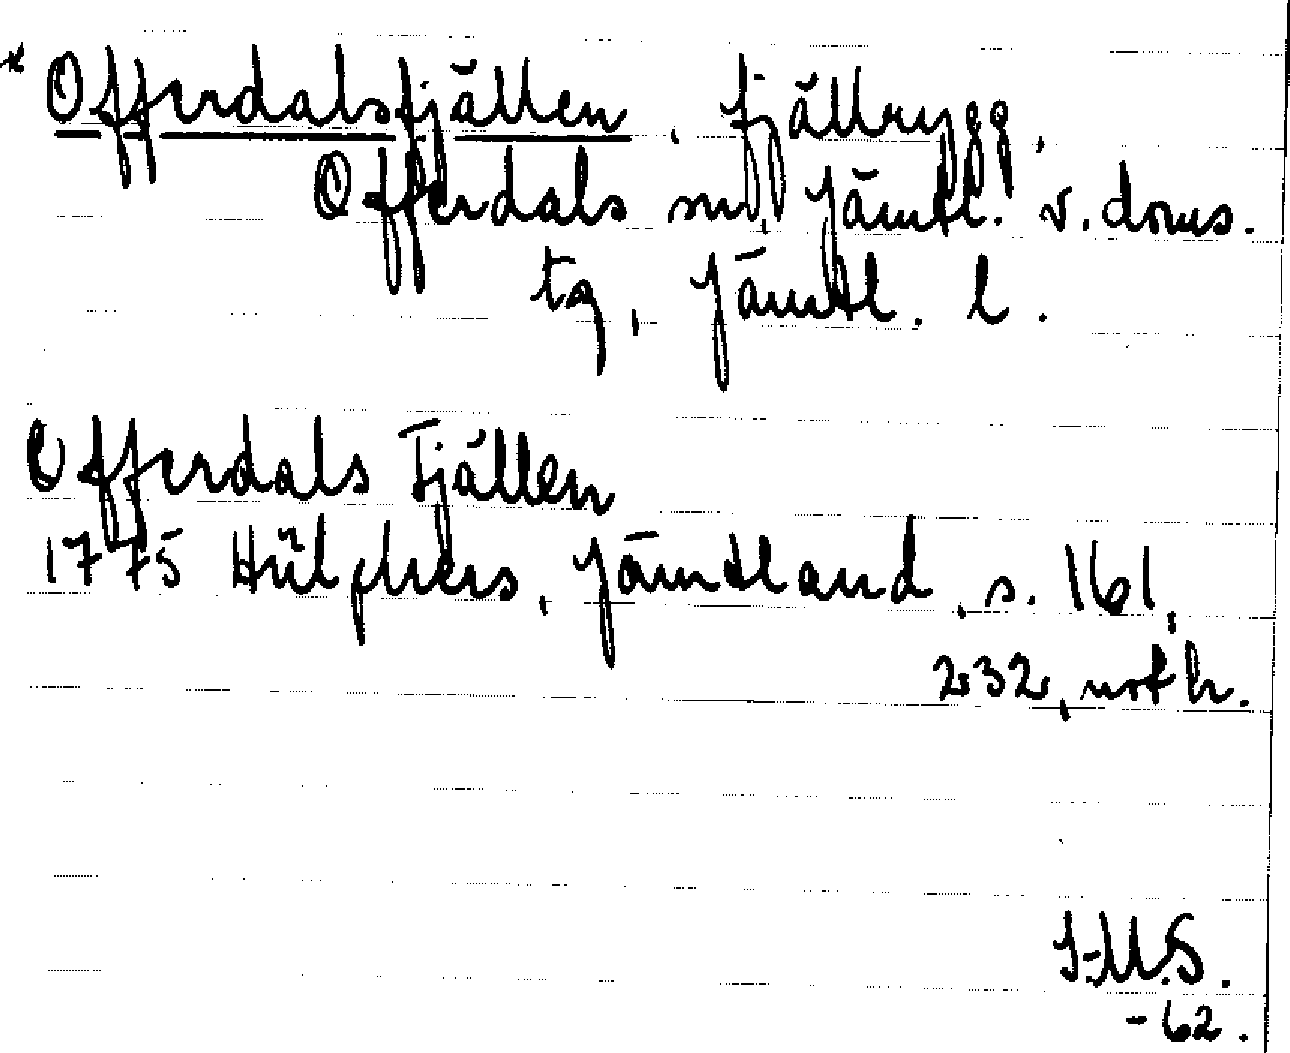 * Offerdalsfjällen, fjällrygg,
Offerdals sn, Jämtl. v. doms.
tg, Jämtl. l.
Offerdals Fjällen
1775 Hülphers, Jämtland, s. 161,
232, noth.
I-M.S.
-62.